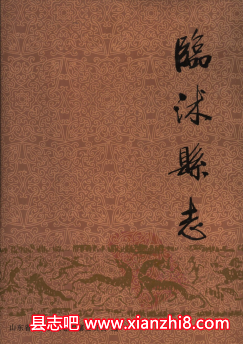 臨沭縣志
县志吧 www.xianzhi8.com